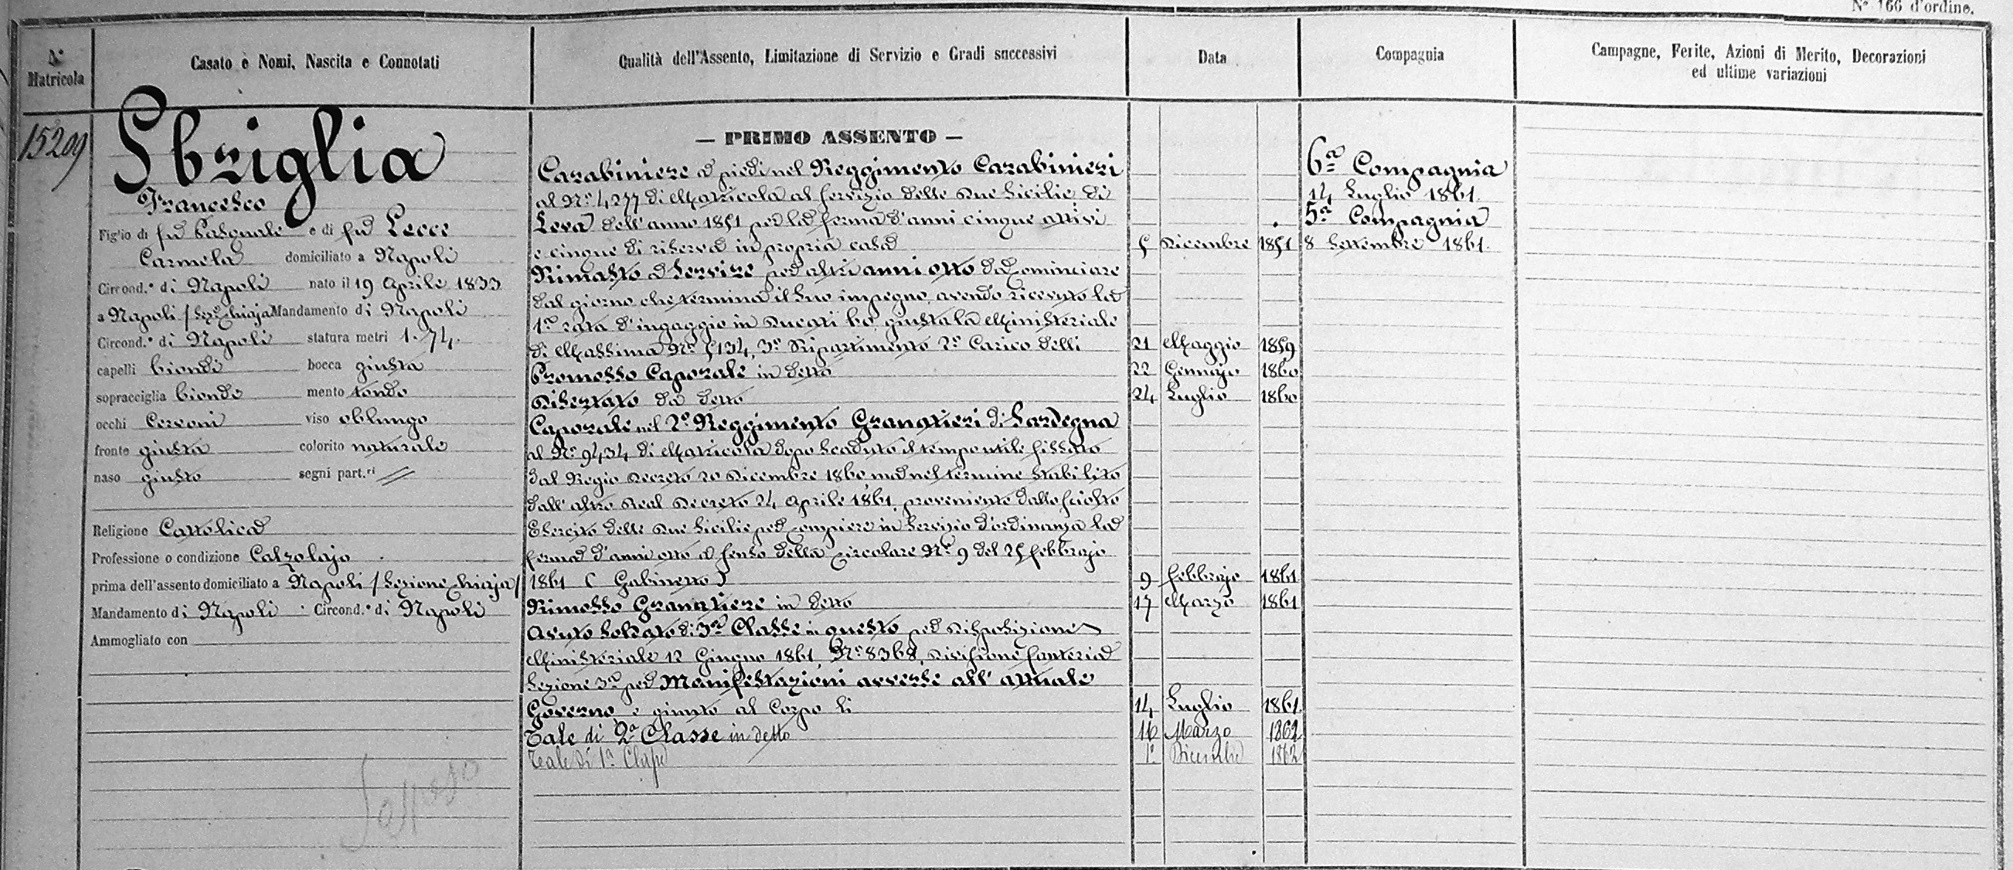 N° 166 d'ordine.
N° Matricola
Casato e Nomi, Nascita e Connotati
Qualità dell'Assento, Limitazione di Servizio e Gradi successivi
Data
Compagnia
Campagne, Ferite, Azioni di Merito, Decorazioni
ed ultime variazioni
15209
Sbriglia
Francesco
Figlio di fu Pasquale e di fu Lecce
Carmela domiciliato a Napoli
Circond.° di Napoli nato il 19 Aprile 1833
a Napoli / Sez.e Chiaja Mandamento di Napoli
Circond.° di Napoli statura metri 1. 74.
capelli biondi bocca giusta
sopracciglia bionde mento tondo
occhi Cervoni viso oblungo
fronte giusta colorito naturale
naso giusto segni part.ri //
Religione Cattolica
Professione o condizione Calzolajo
prima dell'assento domiciliato a Napoli / Sezione Chiaja /
Mandamento di Napoli Circond.° di Napoli
Ammogliato con
— PRIMO ASSENTO —
Carabiniere a piedi nel Reggimento Carabinieri
al N° 4277 di Matricola al servizio delle Due Sicilie di
Leva dell'anno 1851 per la ferma d'anni cinque attivi
e cinque di riserva in propria casa 5 Dicembre 1851
Rimasto a servire per altri anni otto da cominciare
dal giorno che termina il suo impegno, avendo ricevuto la
1a rata d'ingaggio in Ducati 60 giusta la Ministeriale
di Massima N° 5134, 3° Ripartimento 2° Carico delli 21 Maggio 1859
Promosso Caporale in detto 22 Gennajo 1860
Disertato da detto 24 Luglio 1860
Caporale nel 2° Reggimento Granatieri di Sardegna
al N° 9434 di Matricola dopo scaduto il tempo utile fissato
dal Regio Decreto 20 Dicembre 1860 ma nel termine stabilito
dall'altro Real Decreto 24 Aprile 1861, proveniente dallo sciolto
Esercito delle Due Sicilie per compiere in servizio d'ordinanza la
ferma d'anni otto a senso della Circolare N° 9 del 25 febbrajo
1861 ( Gabinetto ) 9 febbrajo 1861
Rimosso Granatiere in detto 17 Marzo 1861
Avuto Soldato di 3a Classe in questo per Disposizione
Ministeriale 12 Giugno 1861 N° 8368, Divisione fanteria
Sezione 3a per Manifestazioni avverse all'attuale
Governo e giunto al Corpo li 14 Luglio 1861
Tale di 2a Classe in detto 16 Marzo 1862
Tale di 1a Classe 1° Dicembre 1862
6a Compagnia
14 Luglio 1861.
5a Compagnia
8 Settembre 1861.